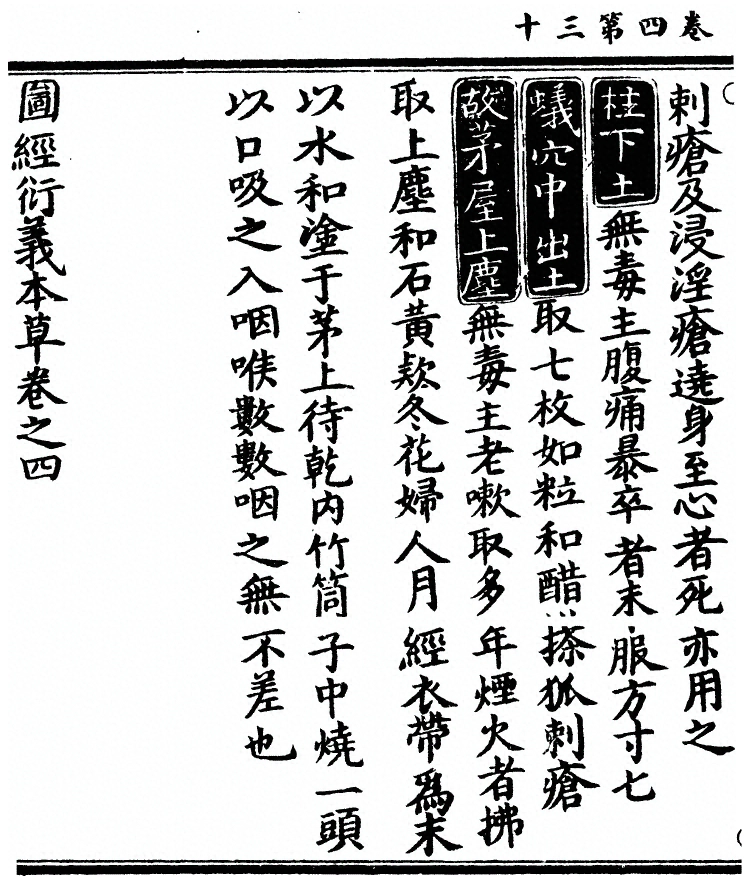 卷四第三十
刺瘡及浸淫瘡遶身至心者死亦用之
桂下土無毒主腹痛暴卒者末服方寸匕
蟻穴中出土取七枚如粒和醋搽狐刺瘡
故茅屋上塵無毒主老嗽取多年煙火者拂
取上塵和石黃款冬花婦人月經衣帶爲末
以水和塗于茅上待乾内竹筒子中燒一頭
以口吸之入咽喉數數咽之無不差也
圖經衍義本草卷之四